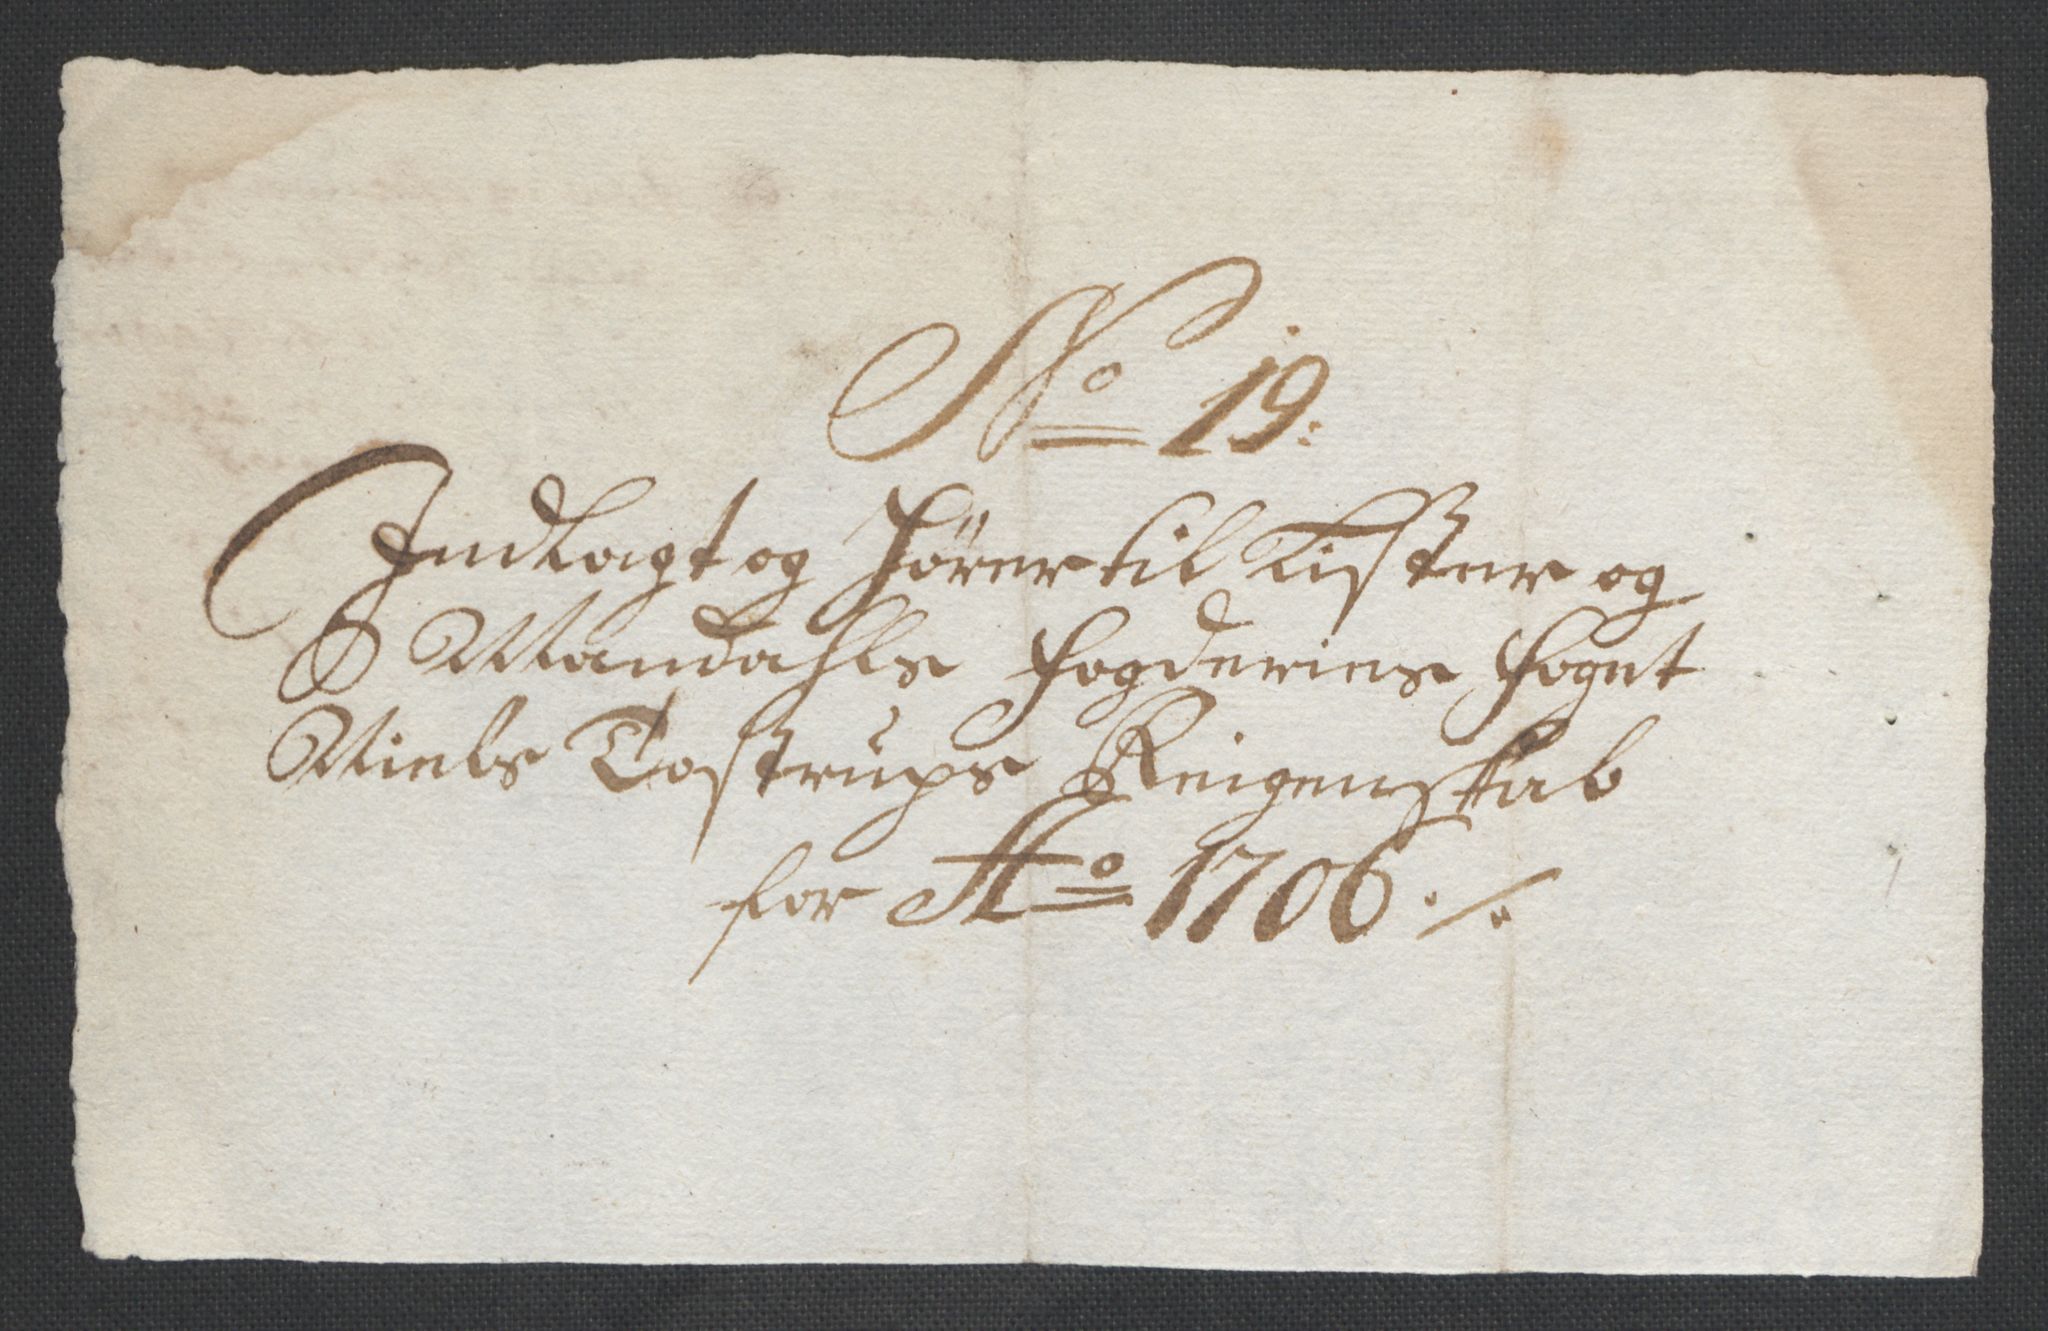 No 19:
Indlagt og hører til Lister og
Mandahls fogderies foget
Niels Tostrups Reigenskab
for Ao 1706 ·/·